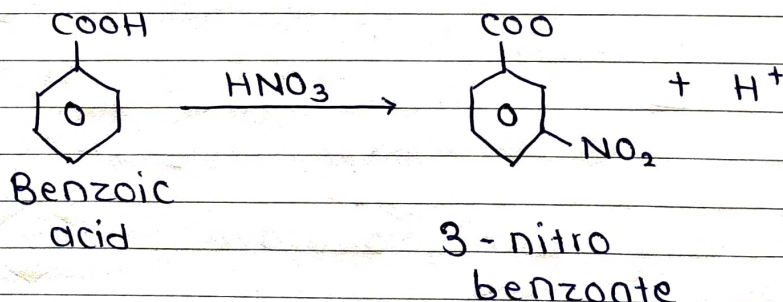 COOH COO
HNO3 + H+
NO2
Benzoic
acid 3-nitro
benzonte